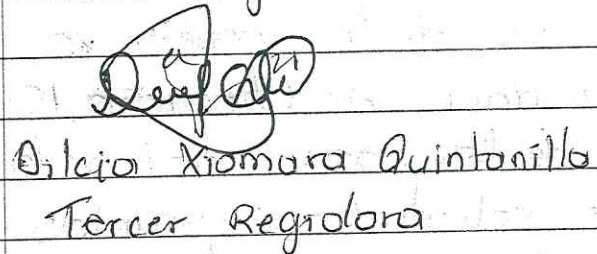 Dilcia Xiomara Quintanilla
Tercer Regidora